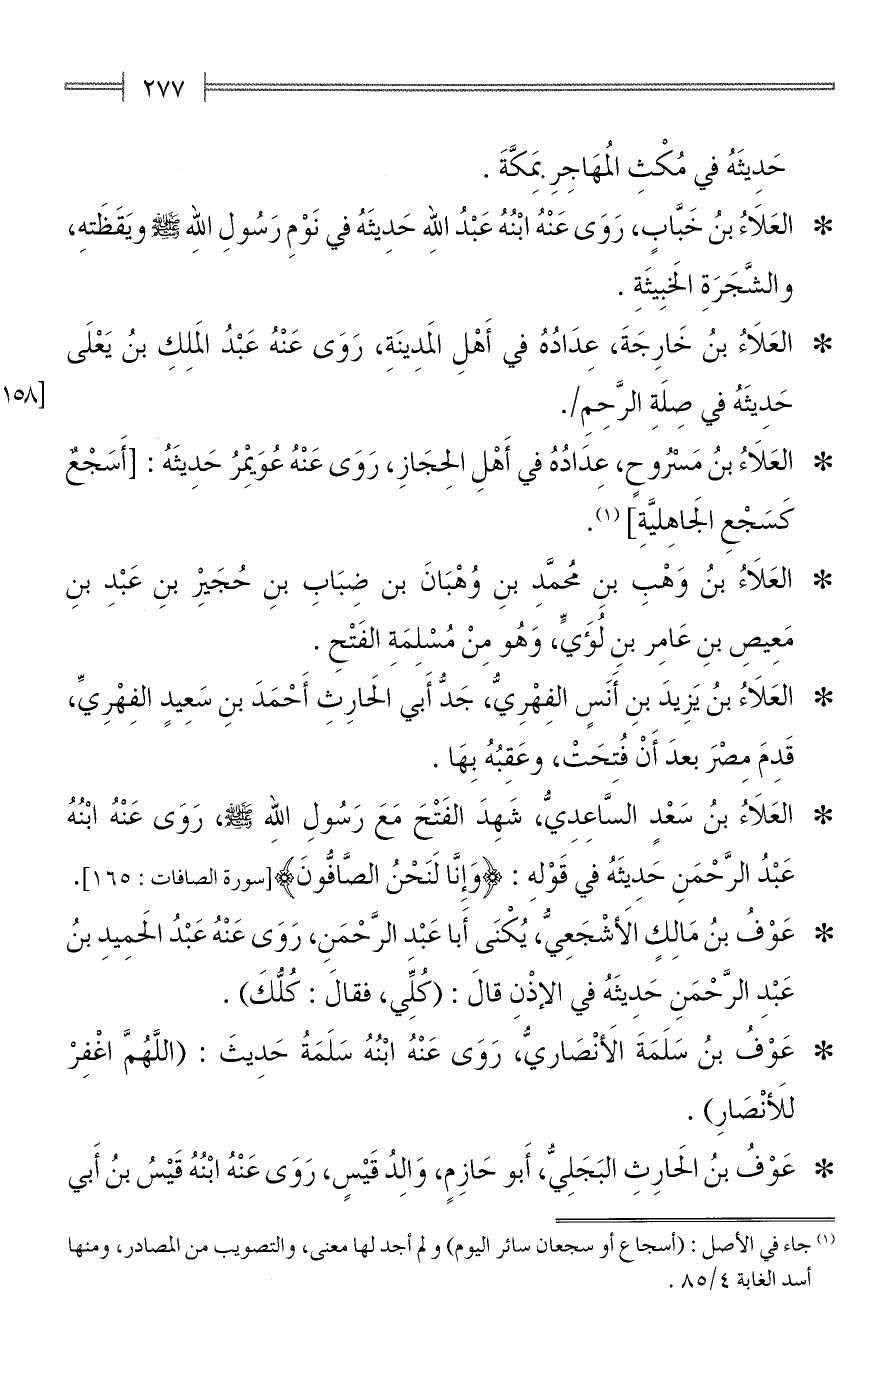 ٢٧٧
حَدِيثَهُ في مُكْثِ المُهَاجِرِ بِمَكَّةَ .
* العَلَاءُ بنُ خَبَّابٍ، رَوَى عَنْهُ ابْنُهُ عَبْدُ اللهِ حَدِيثَهُ في نَوْمِ رَسُولِ اللهِ ﷺ ويَقَظَتهِ،
والشَّجَرَةِ الخَبِيثَةِ .
* العَلَاءُ بنُ خَارِجَةَ، عِدَادُهُ في أَهْلِ المَدِينَةِ، رَوَى عَنْهُ عَبْدُ المَلِكِ بنُ يَعْلَى
حَدِيثَهُ في صِلَةِ الرَّحِمِ/.
[١٥٨
* العَلَاءُ بنُ مَسْرُوحٍ، عِدَادُهُ في أَهْلِ الحِجَازِ، رَوَى عَنْهُ عُوَيْمِرُ حَدِيثَهُ : [أَسَجْعٌ
كَسَجْعِ الجَاهِليَّةِ] (١).
* العَلَاءُ بنُ وَهْبِ بنِ مُحمَّدِ بنِ وُهْبَانَ بن ضِبَابِ بنِ حُجَيْرِ بنِ عَبْدِ بنِ
مَعِيصِ بنِ عَامِرِ بنِ لُؤَيٍّ، وَهُو مِنْ مُسْلِمَةِ الفَتْحِ .
* العَلَاءُ بنُ يَزِيدَ بنِ أَنَسٍ الفِهْرِيُّ، جَدُّ أَبي الحَارِثِ أَحْمَدَ بنِ سَعِيدٍ الفِهْرِيِّ،
قَدِمَ مِصْرَ بعدَ أَنْ فُتحَتْ، وعَقِبُهُ بِهَا .
* العَلَاءُ بنُ سَعْدٍ السَّاعِدِيُّ، شَهِدَ الفَتْحَ مَعَ رَسُولِ اللهِ ﷺ، رَوَى عَنْهُ ابْنُهُ
عَبْدُ الرَّحْمَنِ حَدِيثَهُ في قَوْلهِ : ﴿وَإِنَّا لَنَحْنُ الصَّافُّونَ﴾[سورة الصافات : ١٦٥].
* عَوْفُ بنُ مَالِكٍ الأَشْجَعِيُّ، يُكْنَى أَبا عَبْدِ الرَّحْمَنِ، رَوَى عَنْهُ عَبْدُ الحَمِيدِ بنُ
عَبْدِ الرَّحْمَنِ حَدِيثَهُ في الإذْنِ قالَ : (كُلِّي، فقالَ : كُلُّكَ) .
* عَوْفُ بنُ سَلَمَةَ الأَنْصَارِيُّ، رَوَى عَنْهُ ابْنُهُ سَلَمَةُ حَدِيثَ : (اللَّهُمَّ اغْفِرْ
للأَنْصَارِ) .
* عَوْفُ بنُ الحَارِثِ البَجَلِيُّ، أَبو حَازِمٍ، وَالِدُ قَيْسٍ، رَوَى عَنْهُ ابْنُهُ قَيْسُ بنُ أَبي
(١) جاء في الأصل : (أسجاع أو سجعان سائر اليوم) و لم أجد لها معنى، والتصويب من المصادر، ومنها
أسد الغابة ٤/ ٨٥ .